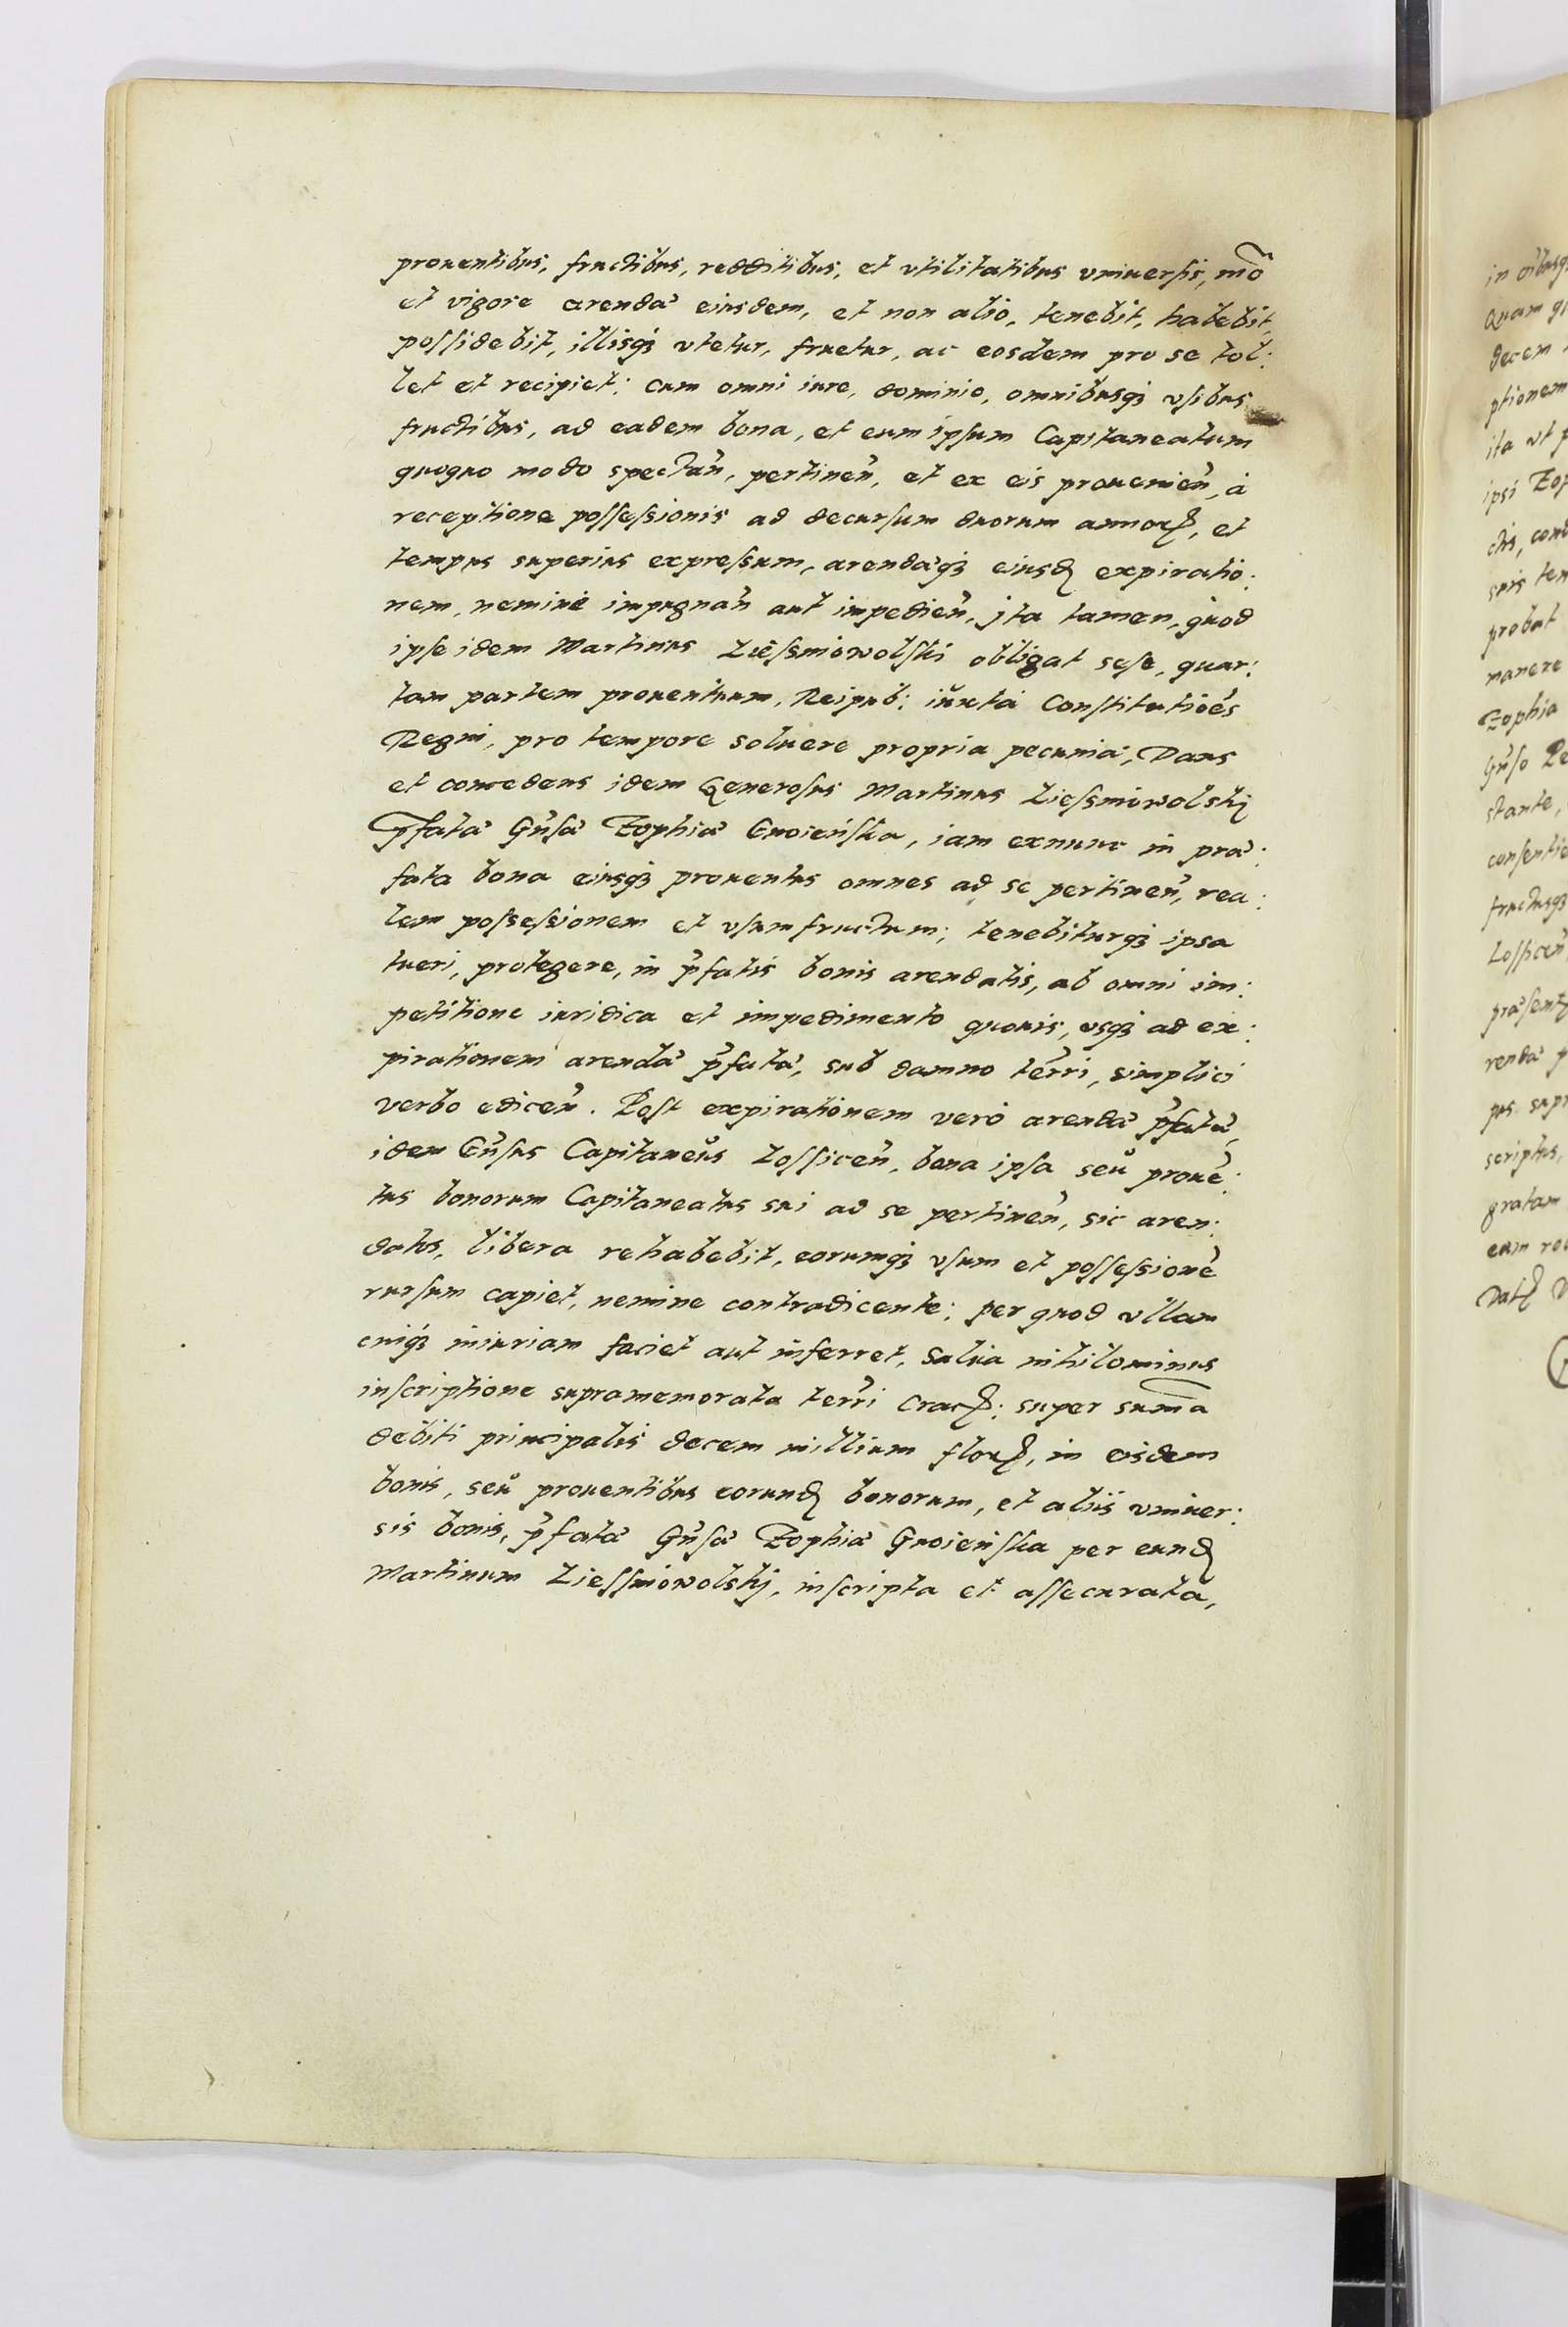 prouentibus, fructibus, redditibus, et vtilitatibus vniuersis, mõ
et vigore arendæ eiusdem, et non alio, tenebit, habebit,
possidebit, illisqꝫ vtetur, fruetur, ac eosdem pro se tol:
let et recipiet; cum omni iure, dominio, omnibusqꝫ vsibus
fructibus, ad eadem bona, et eum ipsum Capitaneatum
quoquo modo spectañ, pertineñ, et ex eis prouenieñ, à
receptione possessionis ad decursum duorum annoꝝ, et
tempus superius expressum, arendæqꝫ eiusđ expiratio:
nem, nemine impugnañ aut impedieñ, jta tamen, quod
ipse idem Martinus Liessniowolski obligat sese, quar:
tam partem prouentuum, Reipub: iuxta Constitutiões
Regni, pro tempore soluere propria pecunia; Dans
et concedens idem Generosus Martinus Liessniowolskj
p̃fatæ Gñsæ Zophiæ Gnoieńska, iam exnunc in præ:
fata bona eiusqꝫ prouentus omnes ad se pertineñ, rea:
lem possessionem et vsumfructum; tenebiturqꝫ ipsa
tueri, protegere, in p̃fatis bonis arendatis, ab omni im:
petitione iuridica et impedimento quouis, vsqꝫ ad ex:
pirationem arendæ p̃fatæ, sub damno terr̃i, simplici
verbo ediceñ. Post expirationem verò arendæ p̃fatæ,
idem Gñsus Capitaneus Lossiceñ, bona ipsa seu prouẽ:
tus bonorum Capitaneatus sui ad se pertineñ, sic aren:
datos, libera rehabebit, eorumqꝫ vsum et possessionẽ
rursum capiet, nemine contradicente; per quod vllam
cuiqꝫ iniuriam faciet aut inferret, Salua nihilominus
inscriptione supramemorata terr̃i Cracꝝ: super sum̃a
debiti principalis decem millium floꝝ, in eisdem
bonis, seu prouentibus eorunđ bonorum, et aliis vniuer:
sis bonis, p̃fatæ Gñsæ Zophiæ Gnoieńska per eunđ
Martinum Liessniowolskj, inscripta et assecurata,